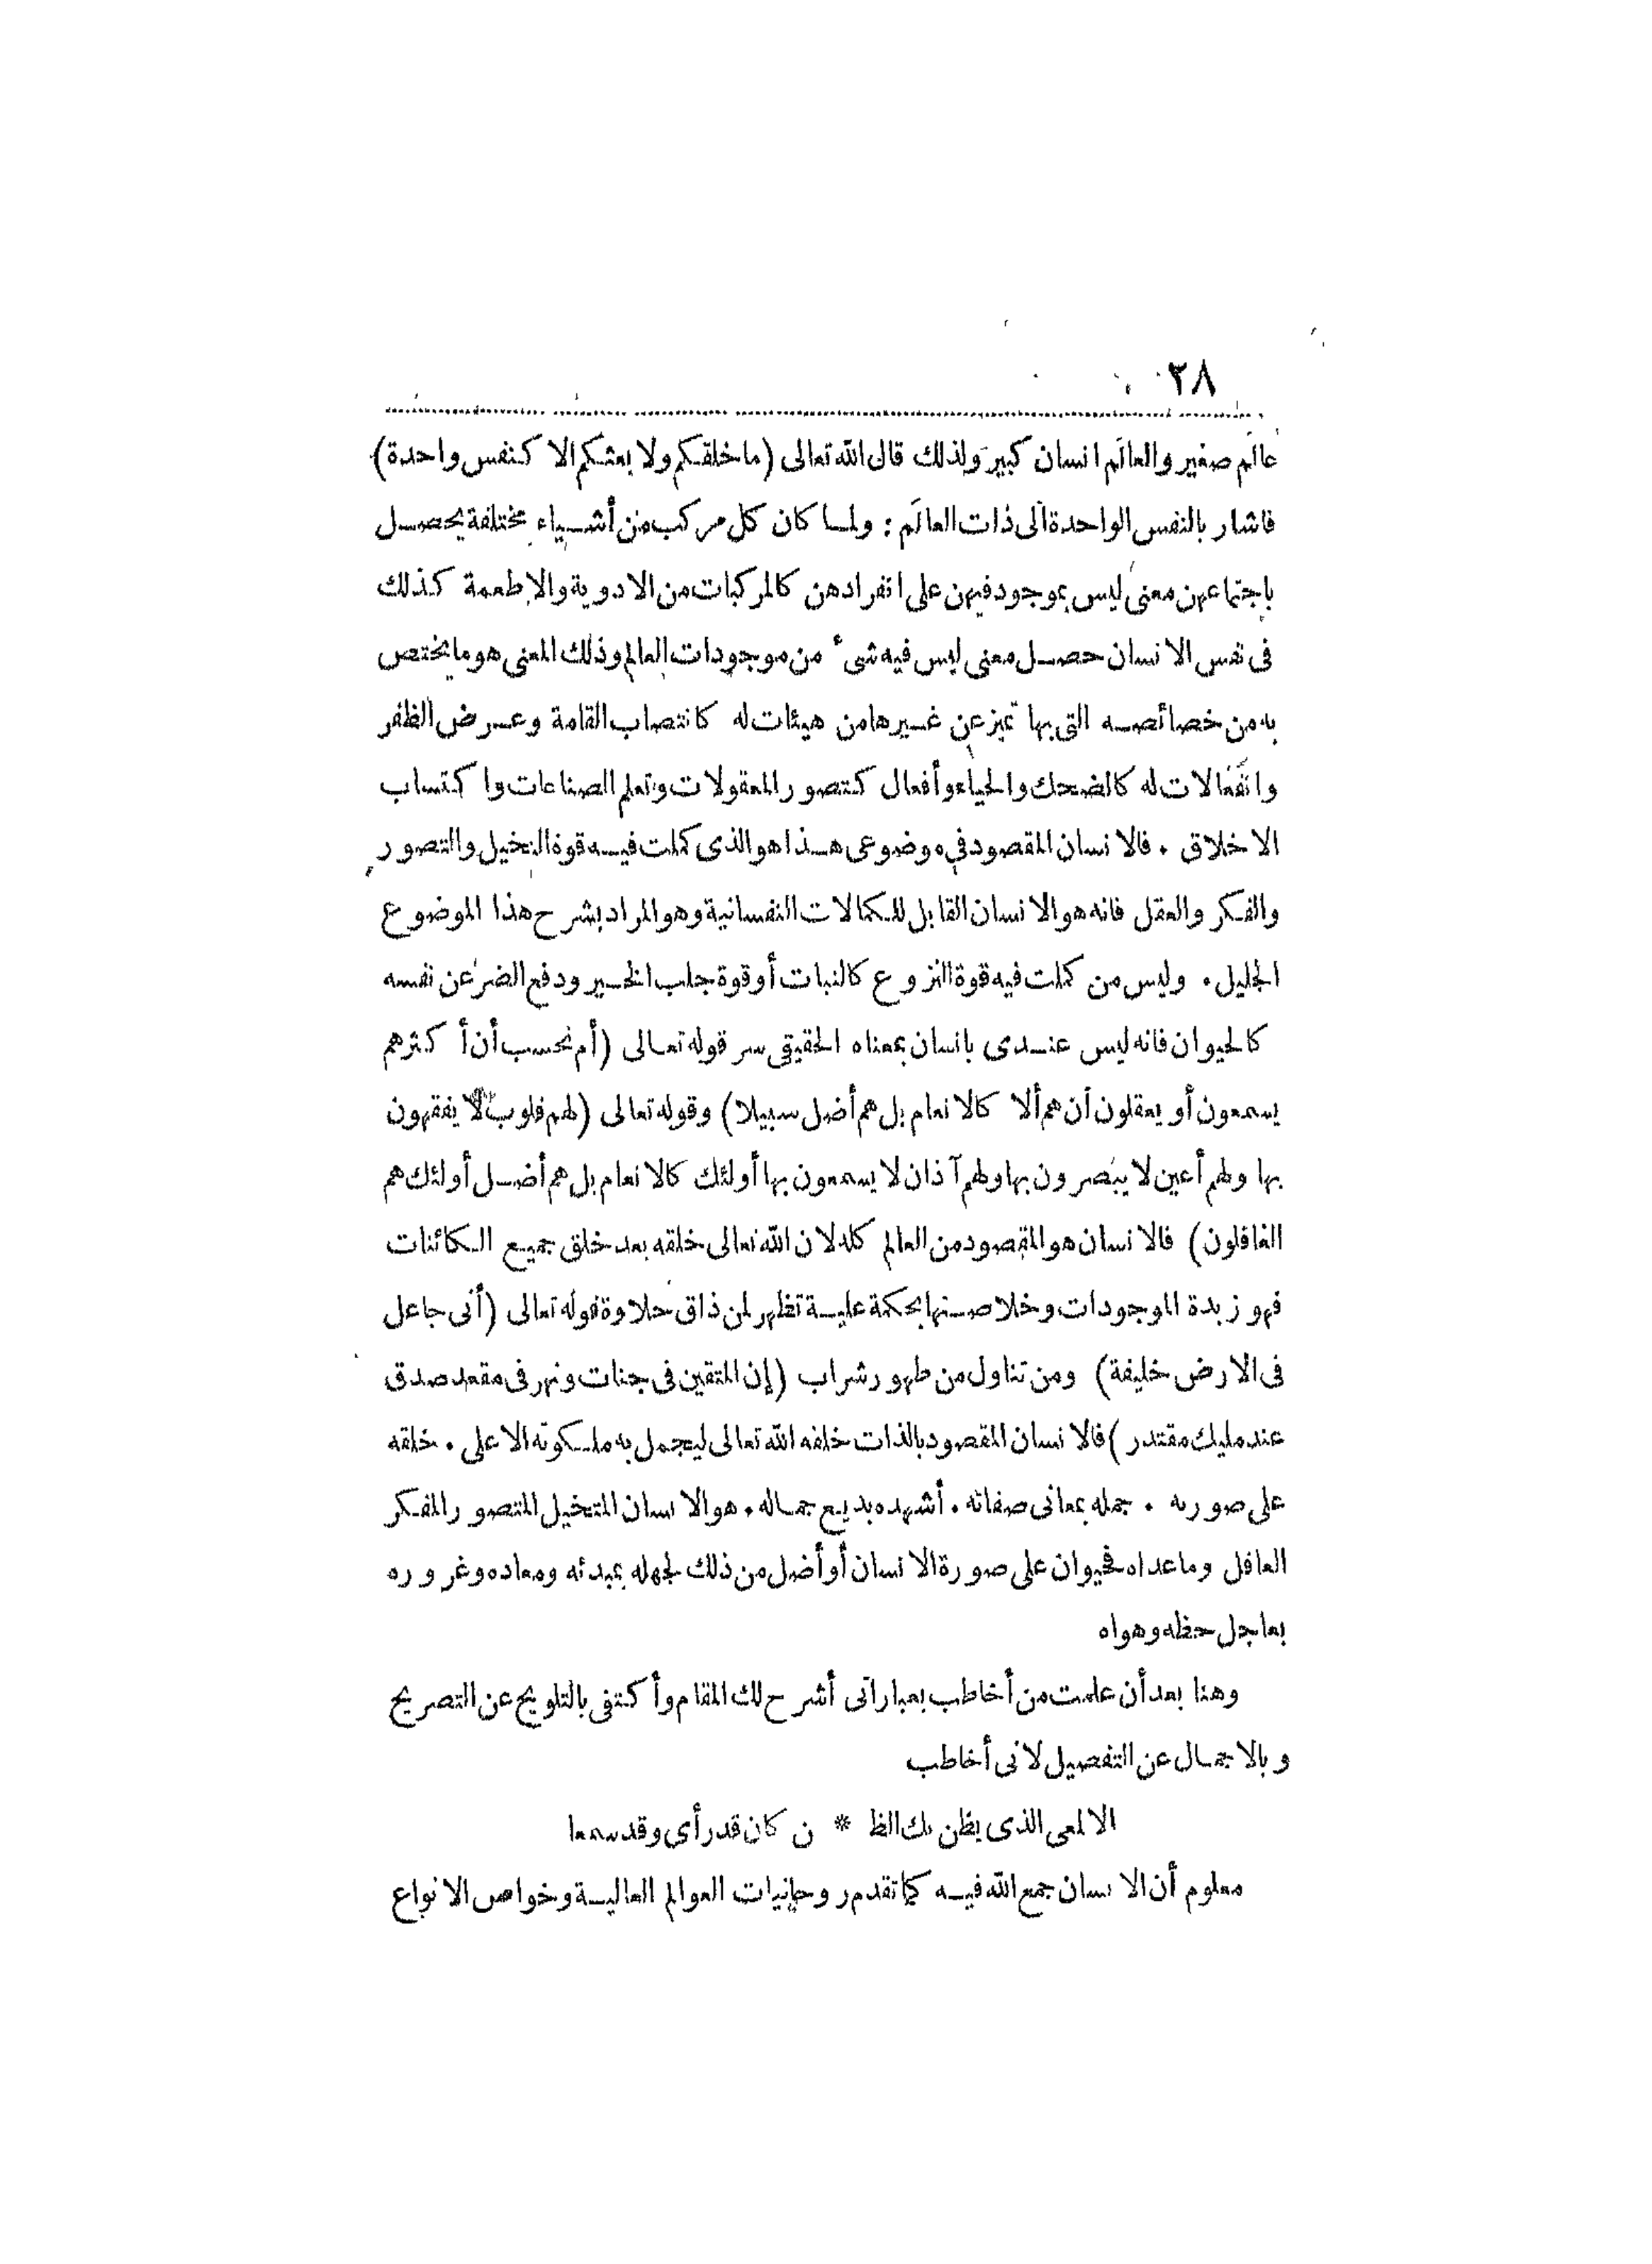 ٣٨
عالَم صغير والعالَم انسان كبير ولذلك قال الله تعالى (ما خلقكم ولا بعثكم الا كنفس واحدة)
فاشار بالنفس الواحدة الى ذات العالَم : ولما كان كل مركب من أشياء مختلفة يحصل
باجتماعهن معنى ليس بموجود فيهن على انفرادهن كالمركبات من الادوية والاطعمة كذلك
فى نفس الانسان حصل معنى ليس فيه شىء من موجودات العالم وذلك المعنى هو ما يختص
به من خصائصه التى بها تميز عن غيرها من هيئات له كانتصاب القامة وعرض الظفر
وانفعالات له كالضحك والحياء وأفعال كتصور المعقولات وتعلم الصناعات واكتساب
الاخلاق . فالانسان المقصود في موضوعى هذا هو الذى كملت فيه قوة التخيل والتصور
والفكر والعقل فانه هو الانسان القابل للكمالات النفسانية وهو المراد بشرح هذا الموضوع
الجليل . وليس من كملت فيه قوة النزوع كالنبات أو قوة جلب الخير ودفع الضر عن نفسه
كالحيوان فانه ليس عندى بانسان بمعناه الحقيقى سر قوله تعالى (أم تحسب أن أكثرهم
يسمعون أو يعقلون أن هم ألا كالانعام بل هم أضل سبيلا) وقوله تعالى (لهم قلوب لا يفقهون
بها ولهم أعين لا يبصرون بها ولهم آذان لا يسمعون بها أولئك كالانعام بل هم أضل أولئك هم
الغافلون) فالانسان هو المقصود من العالم كله لان الله تعالى خلقه بعد خلق جميع الكائنات
فهو زبدة الموجودات وخلاصتها بحكمة علية تظهر لمن ذاق حلاوة قوله تعالى (أنى جاعل
فى الارض خليفة) ومن تناول من طهور شراب (إن المتقين فى جنات ونهر فى مقعد صدق
عند مليك مقتدر) فالانسان المقصود بالذات خلقه الله تعالى ليجمل به ملكوته الاعلى . خلقه
على صورته . جمله بمعانى صفاته . أشهده بديع جماله . هو الانسان المتخيل المتصور المفكر
العاقل وما عداه فحيوان على صورة الانسان أو أضل من ذلك لجهله بمبدئه ومعاده وغروره
بعاجل حظه وهواه
وهنا بعد أن علمت من أخاطب بعباراتى أشرح لك المقام وأكتفى بالتلويح عن التصريح
وبالاجمال عن التفصيل لانى أخاطب
الالمعى الذى يظن بك الظ * ن كان قد رأى وقد سمعا
معلوم أن الانسان جمع الله فيه كما تقدم روحانيات العوالم العالية وخواص الانواع